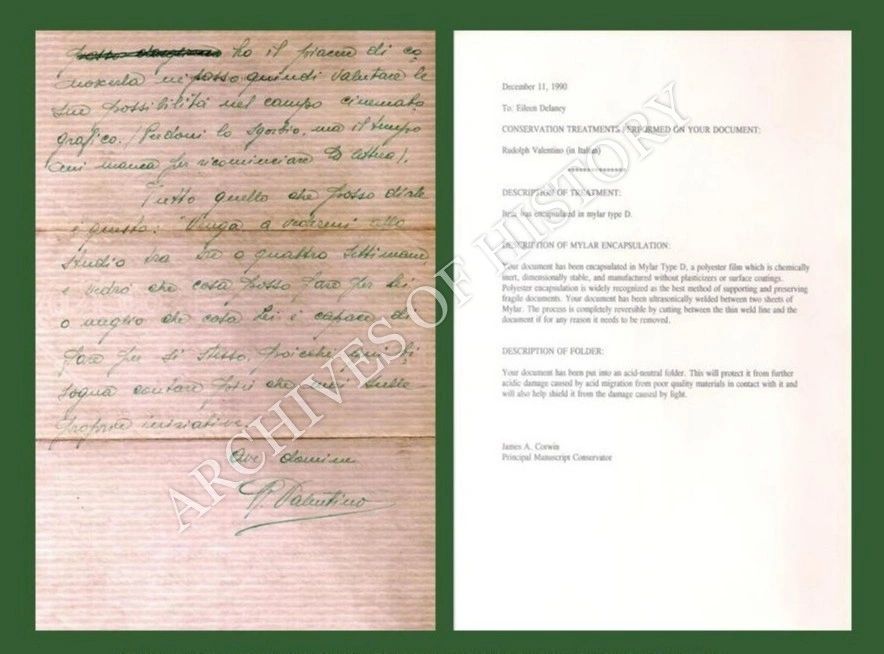 ho il piacere di co
noscerla nè posso quindi valutare le
sue possibilità nel campo cinemato
grafico. (Perdoni lo sgorbio, ma il tempo
mi manca per ricominciare la lettera).
Tutto quello che posso dirle
è questo: "Venga a vedermi allo
studio tra tre o quattro settimane,
e vedrò che cosa posso fare per Lei
o meglio che cosa Lei è capace di
fare per sè stesso, poichè qui bi
sogna contare più che mai sulle
proprie iniziative.
Ave domine
R. Valentino
December 11, 1990
To: Eileen Delaney
CONSERVATION TREATMENTS PERFORMED ON YOUR DOCUMENT:
Rudolph Valentino (in Italian)
DESCRIPTION OF TREATMENT:
Item was encapsulated in mylar type D.
DESCRIPTION OF MYLAR ENCAPSULATION:
Your document has been encapsulated in Mylar Type D, a polyester film which is chemically
inert, dimensionally stable, and manufactured without plasticizers or surface coatings.
Polyester encapsulation is widely recognized as the best method of supporting and preserving
fragile documents. Your document has been ultrasonically welded between two sheets of
Mylar. The process is completely reversible by cutting between the thin weld line and the
document if for any reason it needs to be removed.
DESCRIPTION OF FOLDER:
Your document has been put into an acid-neutral folder. This will protect it from further
acidic damage caused by acid migration from poor quality materials in contact with it and
will also help shield it from the damage caused by light.
James A. Corwin
Principal Manuscript Conservator
ARCHIVES OF HISTORY